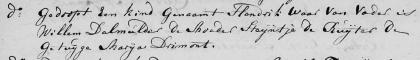 do Gedoopt Een kind Genaamt Hendrik waar van Vader is
Willem Dalmulder de Moeder Steyntje de Ruijter de
Getuyge Marya Drimont.